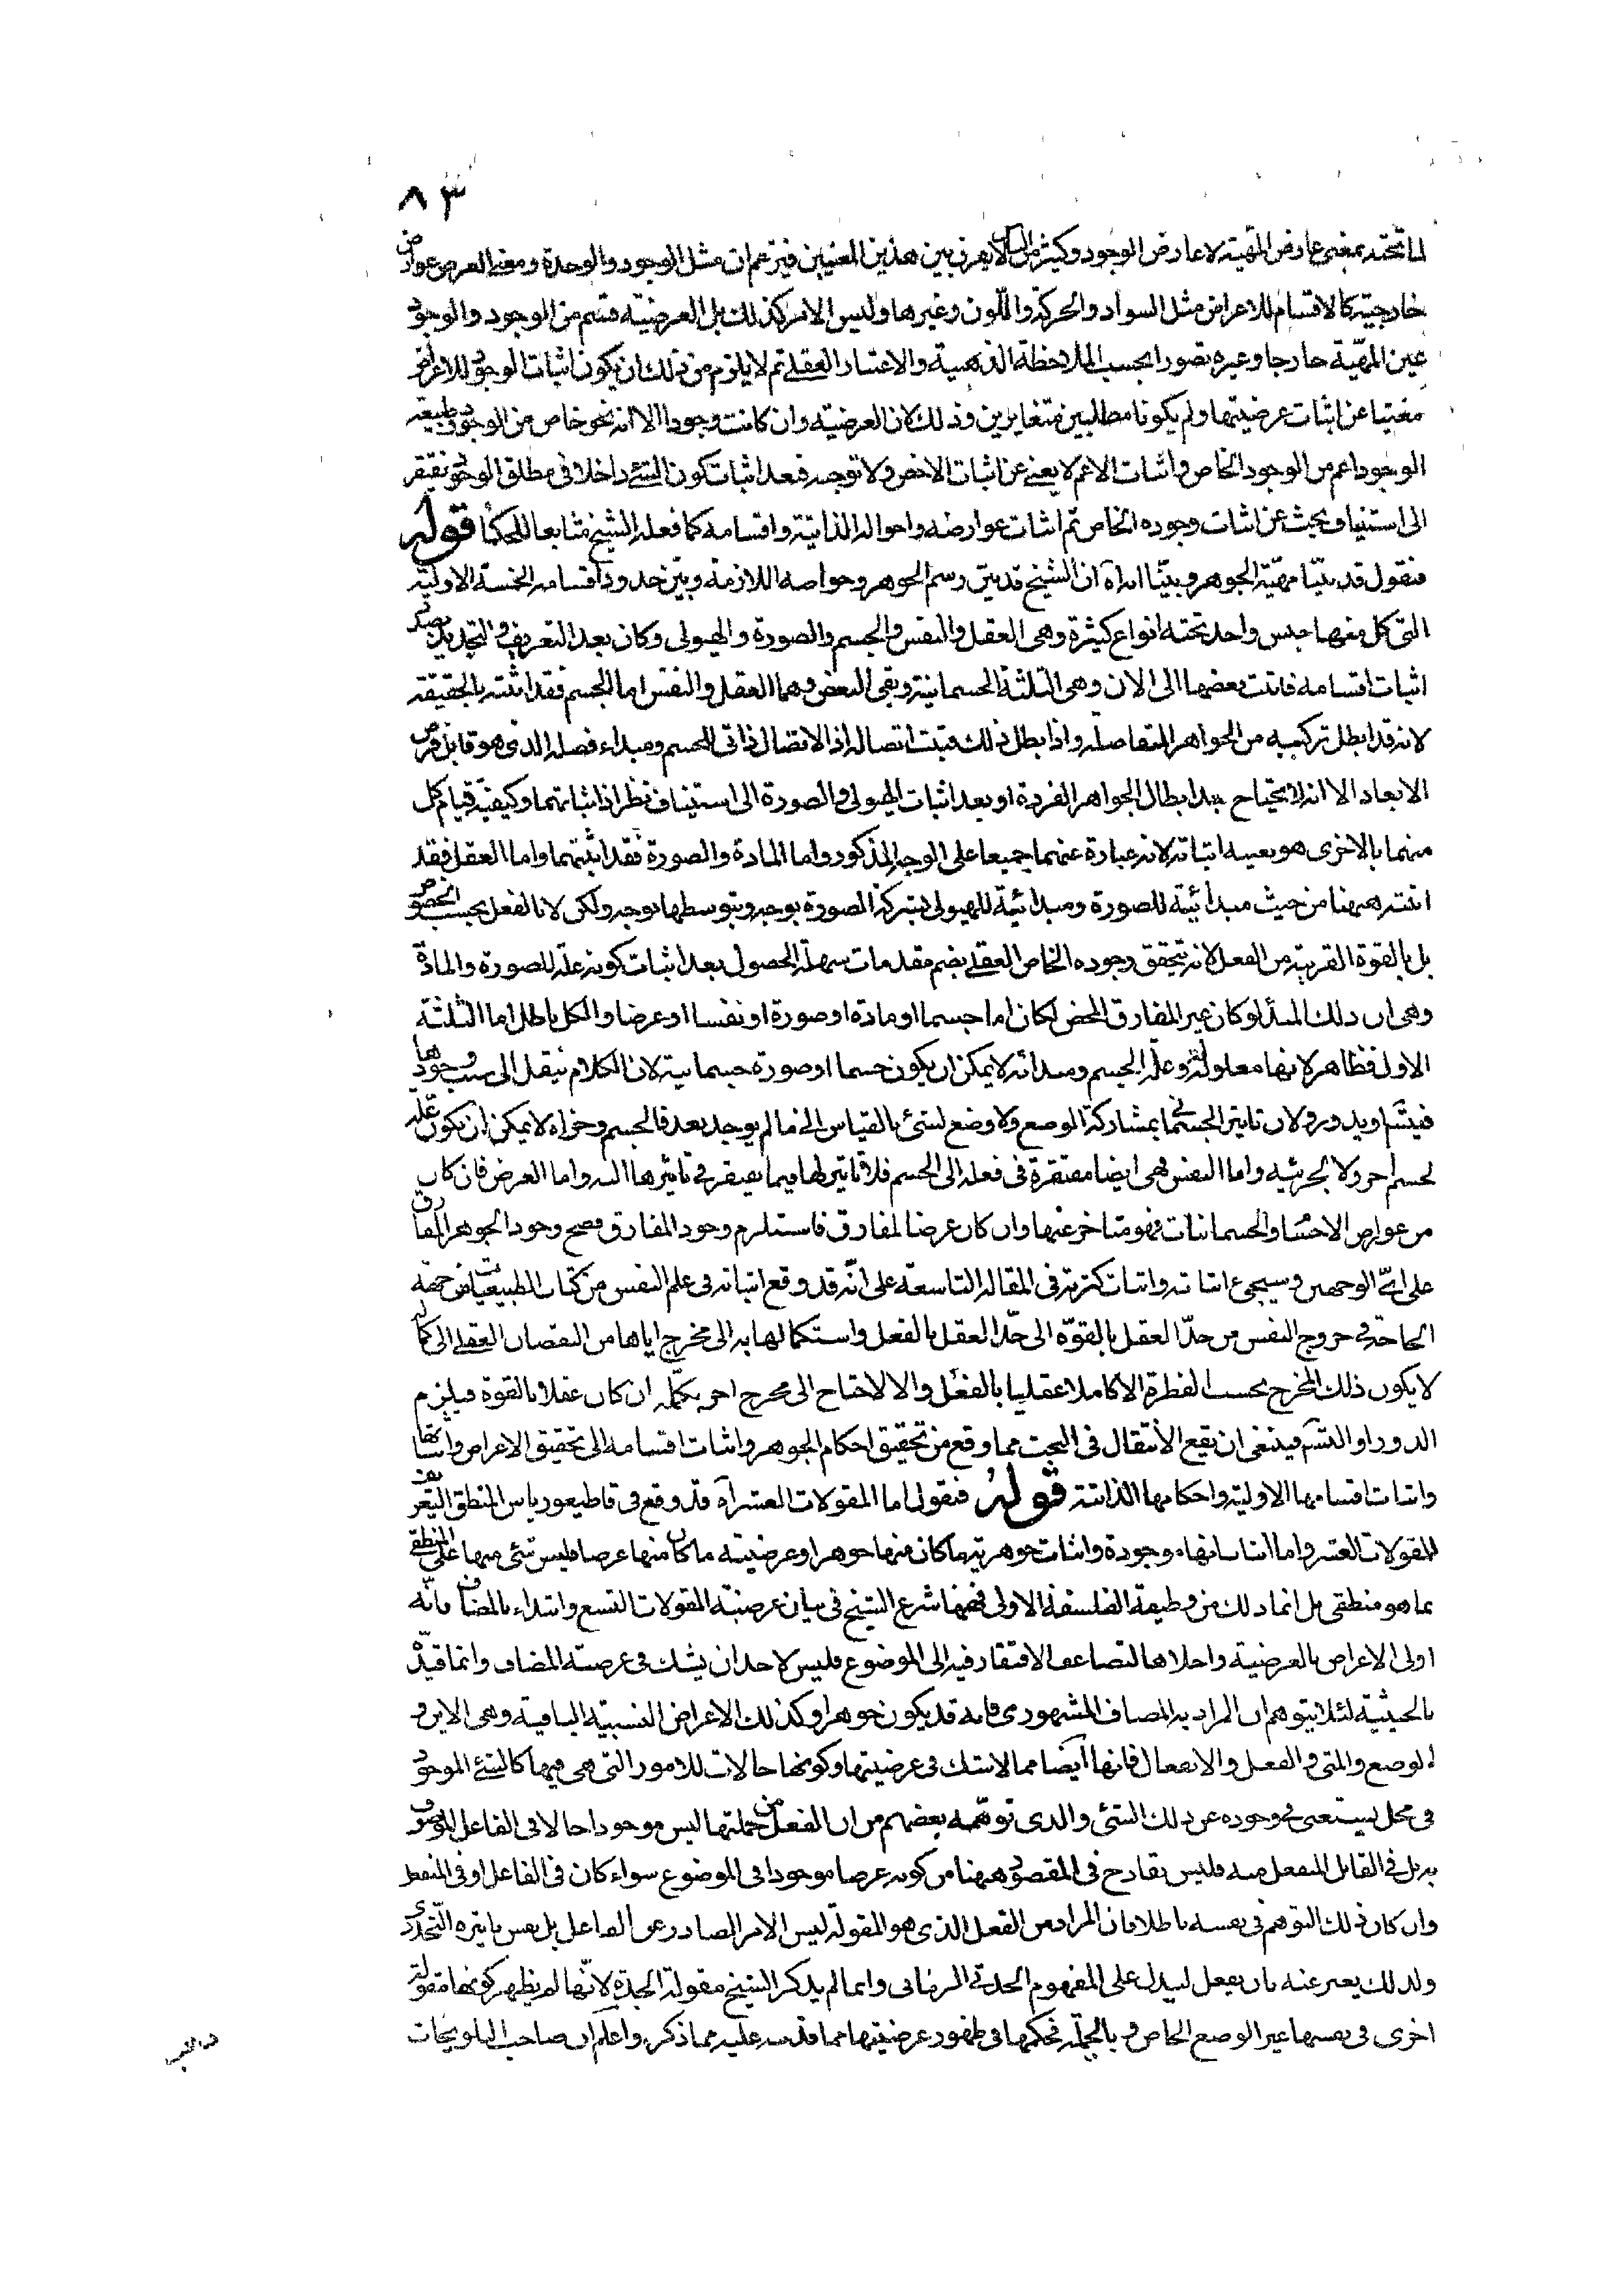 ٨٣
لما تحته بمعنى عارض المهية لا عارض الوجود وكثير من الناس لا يفرق بين هذين المعنيين فيزعم ان مثل الوجود والوحدة ومعنى العرض عوارض
خارجية كالاقسام للاعراض مثل السواد والحركة واللون وغيرها وليس الامر كذلك بل العرضية قسم من الوجود والوجود
عين المهية خارجا وغيره تصورا بحسب الملاحظة الذهنية والاعتبار العقلى ثم لا يلزم من ذلك ان يكون اثبات الوجود للاعراض
مغنيا عن اثبات عرضيتها ولم يكونا مطلبين متغايرين وذلك لان العرضية وان كانت وجودا الا انه نحو خاص من الوجود وطبيعة
الوجود اعم من الوجود الخاص واثبات الاعم لا يغنى عن اثبات الاخص ولا توجبه فبعد اثبات كون الشئ داخلا فى مطلق الوجود نفتقر
الى استيناف بحث عن اثبات وجوده الخاص ثم اثبات عوارضه واحواله الذاتية واقسامه كما فعله الشيخ متابعا للحكماء قوله
فنقول قد بينا مهية الجوهر وبينا اه ان الشيخ قد بين رسم الجوهر وخواصه اللازمة وبين حدود اقسامه الخمسة الاولية
التى كل منها جنس واحد تحته انواع كثيرة وهى العقل والنفس والجسم والصورة والهيولى وكان بعد التعريف والتحديد بصدد
اثبات اقسامه فاثبت بعضها الى الان وهى الثلثة الجسمانية وبقى البعض وهما العقل والنفس اما الجسم فقد اثبته بالحقيقة
لانه قد ابطل تركيبه من الجواهر المتفاصلة واذا بطل ذلك فثبت اتصاله اذ الاتصال ذاتى للجسم ومبداء فصله الذى هو قابل فرض
الابعاد الا انه لا يحتاج بعد ابطال الجواهر الفردة او بعد اثبات الهيولى والصورة الى استيناف نظر اذ اثباتهما وكيفية قيام كل
منهما بالاخرى هو بعينه اثباته لانه عبارة عنهما جميعا على الوجه المذكور واما المادة والصورة فقد اثبتهما واما العقل فقد
اثبته ههنا من حيث مبدائية للصورة ومبدائية للهيولى بشركة الصورة بوجه وبتوسطها بوجه ولكن لا بالفعل بحسب الخصوص
بل بالقوة القريبة من الفعل لانه يتحقق وجوده الخاص العقلى بضم مقدمات سهلة الحصول بعد اثبات كونه علة للصورة والمادة
وهى ان ذلك المبدأ لو كان غير المفارق المحض لكان اما جسما او مادة او صورة او نفسا او عرضا والكل باطل اما الثلثة
الاول فظاهر لانها معلولة وعلة الجسم ومبدائه لا يمكن ان يكون جسما او صورة جسمانية لان الكلام ينقل الى سبب وجودها
فيتسم او يدور ولان تاثير الجسم انما بمشاركة الوضع ولا وضع لشئ بالقياس الى ما لم يوجد بعد فالجسم وجزاه لا يمكن ان يكون علة
لجسم اخر ولا لجزئيه واما النفس فهى ايضا مفتقرة فى فعله الى الجسم فلا تاثير لها فيما يفتقر فى تاثيرها اليه واما العرض فان كان
من عوارض الاجسام والجسمانيات فهو متاخر عنها وان كان عرضا لمفارق فاستلزم وجود المفارق فصح وجود الجوهر المفارق
على اىّ الوجهين وسيجئ اثباته واثبات كثرته فى المقالة التاسعة على انه قد وقع اثباته فى علم النفس من كتاب الطبيعيات من جهة
الحاجة فى خروج النفس من حد العقل بالقوة الى حد العقل بالفعل واستكمالها به الى مخرج اياها من النقصان العقلى الى كماله
لا يكون ذلك المخرج بحسب الفطرة الا كاملا عقليا بالفعل والا لاحتاج الى مخرج اخر يكمله ان كان عقلا بالقوة فيلزم
الدور او التسم فينبغى ان يقع الانتقال فى البحث مما وقع من تحقيق احكام الجوهر واثبات اقسامه الى تحقيق الاعراض واثباتها
واثبات اقسامها الاولية واحكامها الذاتية قوله فنقول اما المقولات العشر اه قد وقع فى قاطيغورياس المنطق التعريف
للمقولات العشر واما اثبات انها موجودة واثبات جوهرية ما كان منها جوهرا وعرضية ما كان منها عرضا فليس شئ منها على المنطقى
بما هو منطقى بل انما ذلك من وظيفة الفلسفة الاولى فههنا شرع الشيخ فى بيان عرضية المقولات التسع وابتداء بالمضاف فانه
اولى الاعراض بالعرضية واجلاها لتضاعف الافتقار فيه الى الموضوع فليس لاحد ان يشك فى عرضية المضاف وانما قيد
بالحيثية لئلا يتوهم ان المراد به المضاف المشهورى فانه قد يكون جوهرا وكذلك الاعراض النسبية الباقية وهى الاين و
الوضع والمتى والفعل والانفعال فانها ايضا مما لا شك فى عرضيتها وكونها حالات للامور التى هى فيها كالشئ الموجود
فى محل يستغنى فى وجوده عن ذلك الشئ والذى توهمه بعضهم من ان الفعل من جملتها ليس موجودا حالا فى الفاعل الموصوف
به بل فى القابل المنفعل منه فليس بقادح فى المقصود ههنا من كونه عرضا موجودا فى الموضوع سواء كان فى الفاعل او فى المنفعل
وان كان ذلك التوهم فى نفسه باطلا فان المراد من الفعل الذى هو المقولة ليس الامر الصادر عن الفاعل بل نفس تاثيره التجددى
ولذلك يعبر عنه بان يفعل ليدل على المفهوم الحدثى الزمانى وانما لم يذكر الشيخ مقولة الجدة لانها لم يظهر كونها مقولة
اخرى فى نفسها غير الوضع الخاص وبالجملة فحكمها فى ظهور عرضيتها مما قد نبه عليه مما ذكر واعلم ان صاحب التلويحات